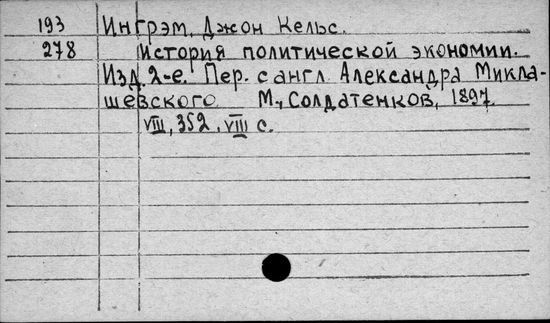 193 Ингрэм, Джон Кельс.
278 История политической экономии.
Изд. 2-е. Пер. с англ. Александра Микла-
шевского М., Солдатенков, 1897.
VIII, 352, VIII с.